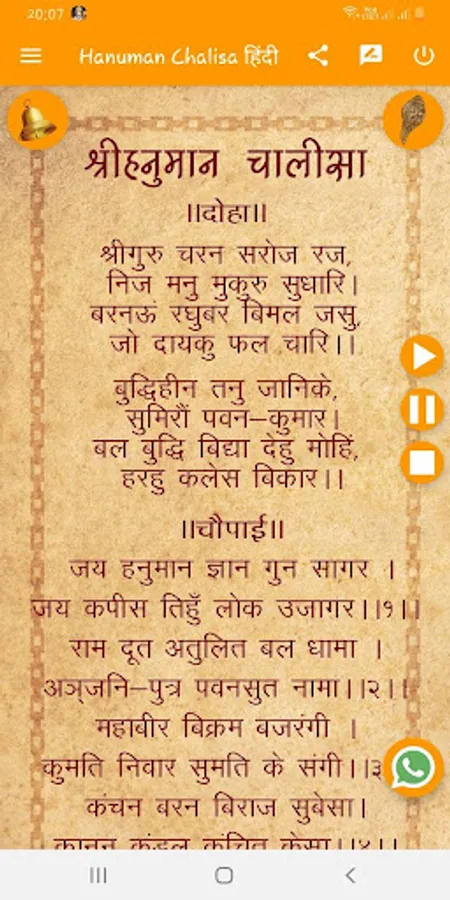 20:07
Hanuman Chalisa हिंदी
श्रीहनुमान चालीसा
॥दोहा॥
श्रीगुरु चरन सरोज रज,
निज मनु मुकुरु सुधारि।
बरनऊं रघुबर बिमल जसु,
जो दायकु फल चारि।।
बुद्धिहीन तनु जानिके,
सुमिरौं पवन–कुमार।
बल बुद्धि बिद्या देहु मोहिं,
हरहु कलेस बिकार।।
॥चौपाई॥
जय हनुमान ज्ञान गुन सागर ।
जय कपीस तिहुँ लोक उजागर।।१।।
राम दूत अतुलित बल धामा ।
अञ्जनि–पुत्र पवनसुत नामा।।२।।
महाबीर बिक्रम बजरंगी ।
कुमति निवार सुमति के संगी।।३
कंचन बरन बिराज सुबेसा।
कानन कुंडल कुंचित केसा।।४।।